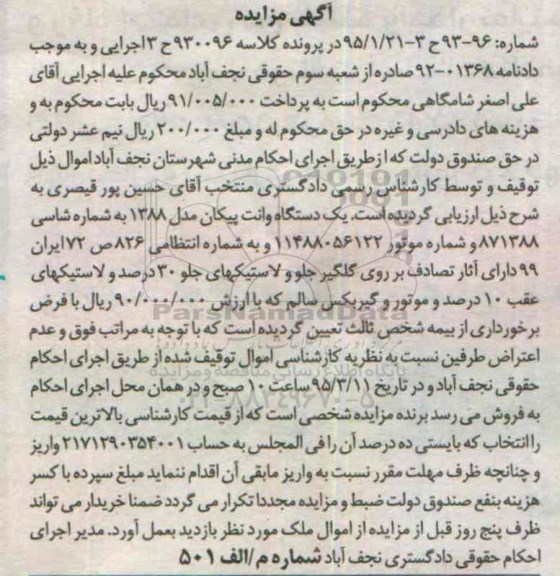 آگهی مزایده
شماره: ۹۶-۹۳ ح ۳-۹۵/۱/۲۱ در پرونده کلاسه ۹۳۰۰۹۶ ح ۳ اجرایی و به موجب
دادنامه ۰۱۳۶۸-۹۲ صادره از شعبه سوم حقوقی نجف آباد محکوم علیه اجرایی آقای
علی اصغر شامگاهی محکوم است به پرداخت ۹۱/۰۰۵/۰۰۰ ریال بابت محکوم به و
هزینه های دادرسی و غیره در حق محکوم له و مبلغ ۲۰۰/۰۰۰ ریال نیم عشر دولتی
در حق صندوق دولت که از طریق اجرای احکام مدنی شهرستان نجف آباد اموال ذیل
توقیف و توسط کارشناس رسمی دادگستری منتخب آقای حسین پور قیصری به
شرح ذیل ارزیابی گردیده است. یک دستگاه وانت پیکان مدل ۱۳۸۸ به شماره شاسی
۸۷۱۳۸۸ و شماره موتور ۱۱۴۸۸۰۵۶۱۲۲ و به شماره انتظامی ۸۲۶ ص ۷۲ ایران
۹۹ دارای آثار تصادف بر روی گلگیر جلو و لاستیکهای جلو ۳۰ درصد و لاستیکهای
عقب ۱۰ درصد و موتور و گیربکس سالم که با ارزش ۹۰/۰۰۰/۰۰۰ ریال با فرض
برخورداری از بیمه شخص ثالث تعیین گردیده است که با توجه به مراتب فوق و عدم
اعتراض طرفین نسبت به نظریه کارشناسی اموال توقیف شده از طریق اجرای احکام
حقوقی نجف آباد و در تاریخ ۹۵/۳/۱۱ ساعت ۱۰ صبح و در همان محل اجرای احکام
به فروش می رسد برنده مزایده شخصی است که از قیمت کارشناسی بالاترین قیمت
را انتخاب که بایستی ده درصد آن را فی المجلس به حساب ۲۱۷۱۲۹۰۳۵۴۰۰۱ واریز
و چنانچه ظرف مهلت مقرر نسبت به واریز مابقی آن اقدام ننماید مبلغ سپرده با کسر
هزینه بنفع صندوق دولت ضبط و مزایده مجددا تکرار می گردد ضمنا خریدار می تواند
ظرف پنج روز قبل از مزایده از اموال ملک مورد نظر بازدید بعمل آورد. مدیر اجرای
احکام حقوقی دادگستری نجف آباد شماره م/الف ۵۰۱
ParsNamadData